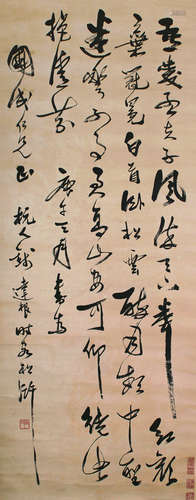 吾愛孟夫子風流天下聞紅顏
棄軒冕白首臥松雲醉月頻中聖
迷花不事君高山安可仰徒此
揖清芬 庚午三月書
國成仁兄正 杭人錢達根時客